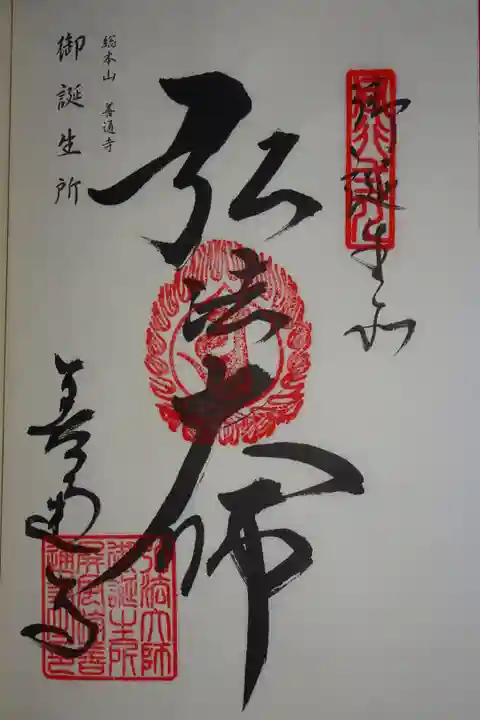 御誕生所
弘法大師
善通寺
総本山 善通寺
御誕生所
弘法大師
御誕生所
屏風浦善
通寺之邑